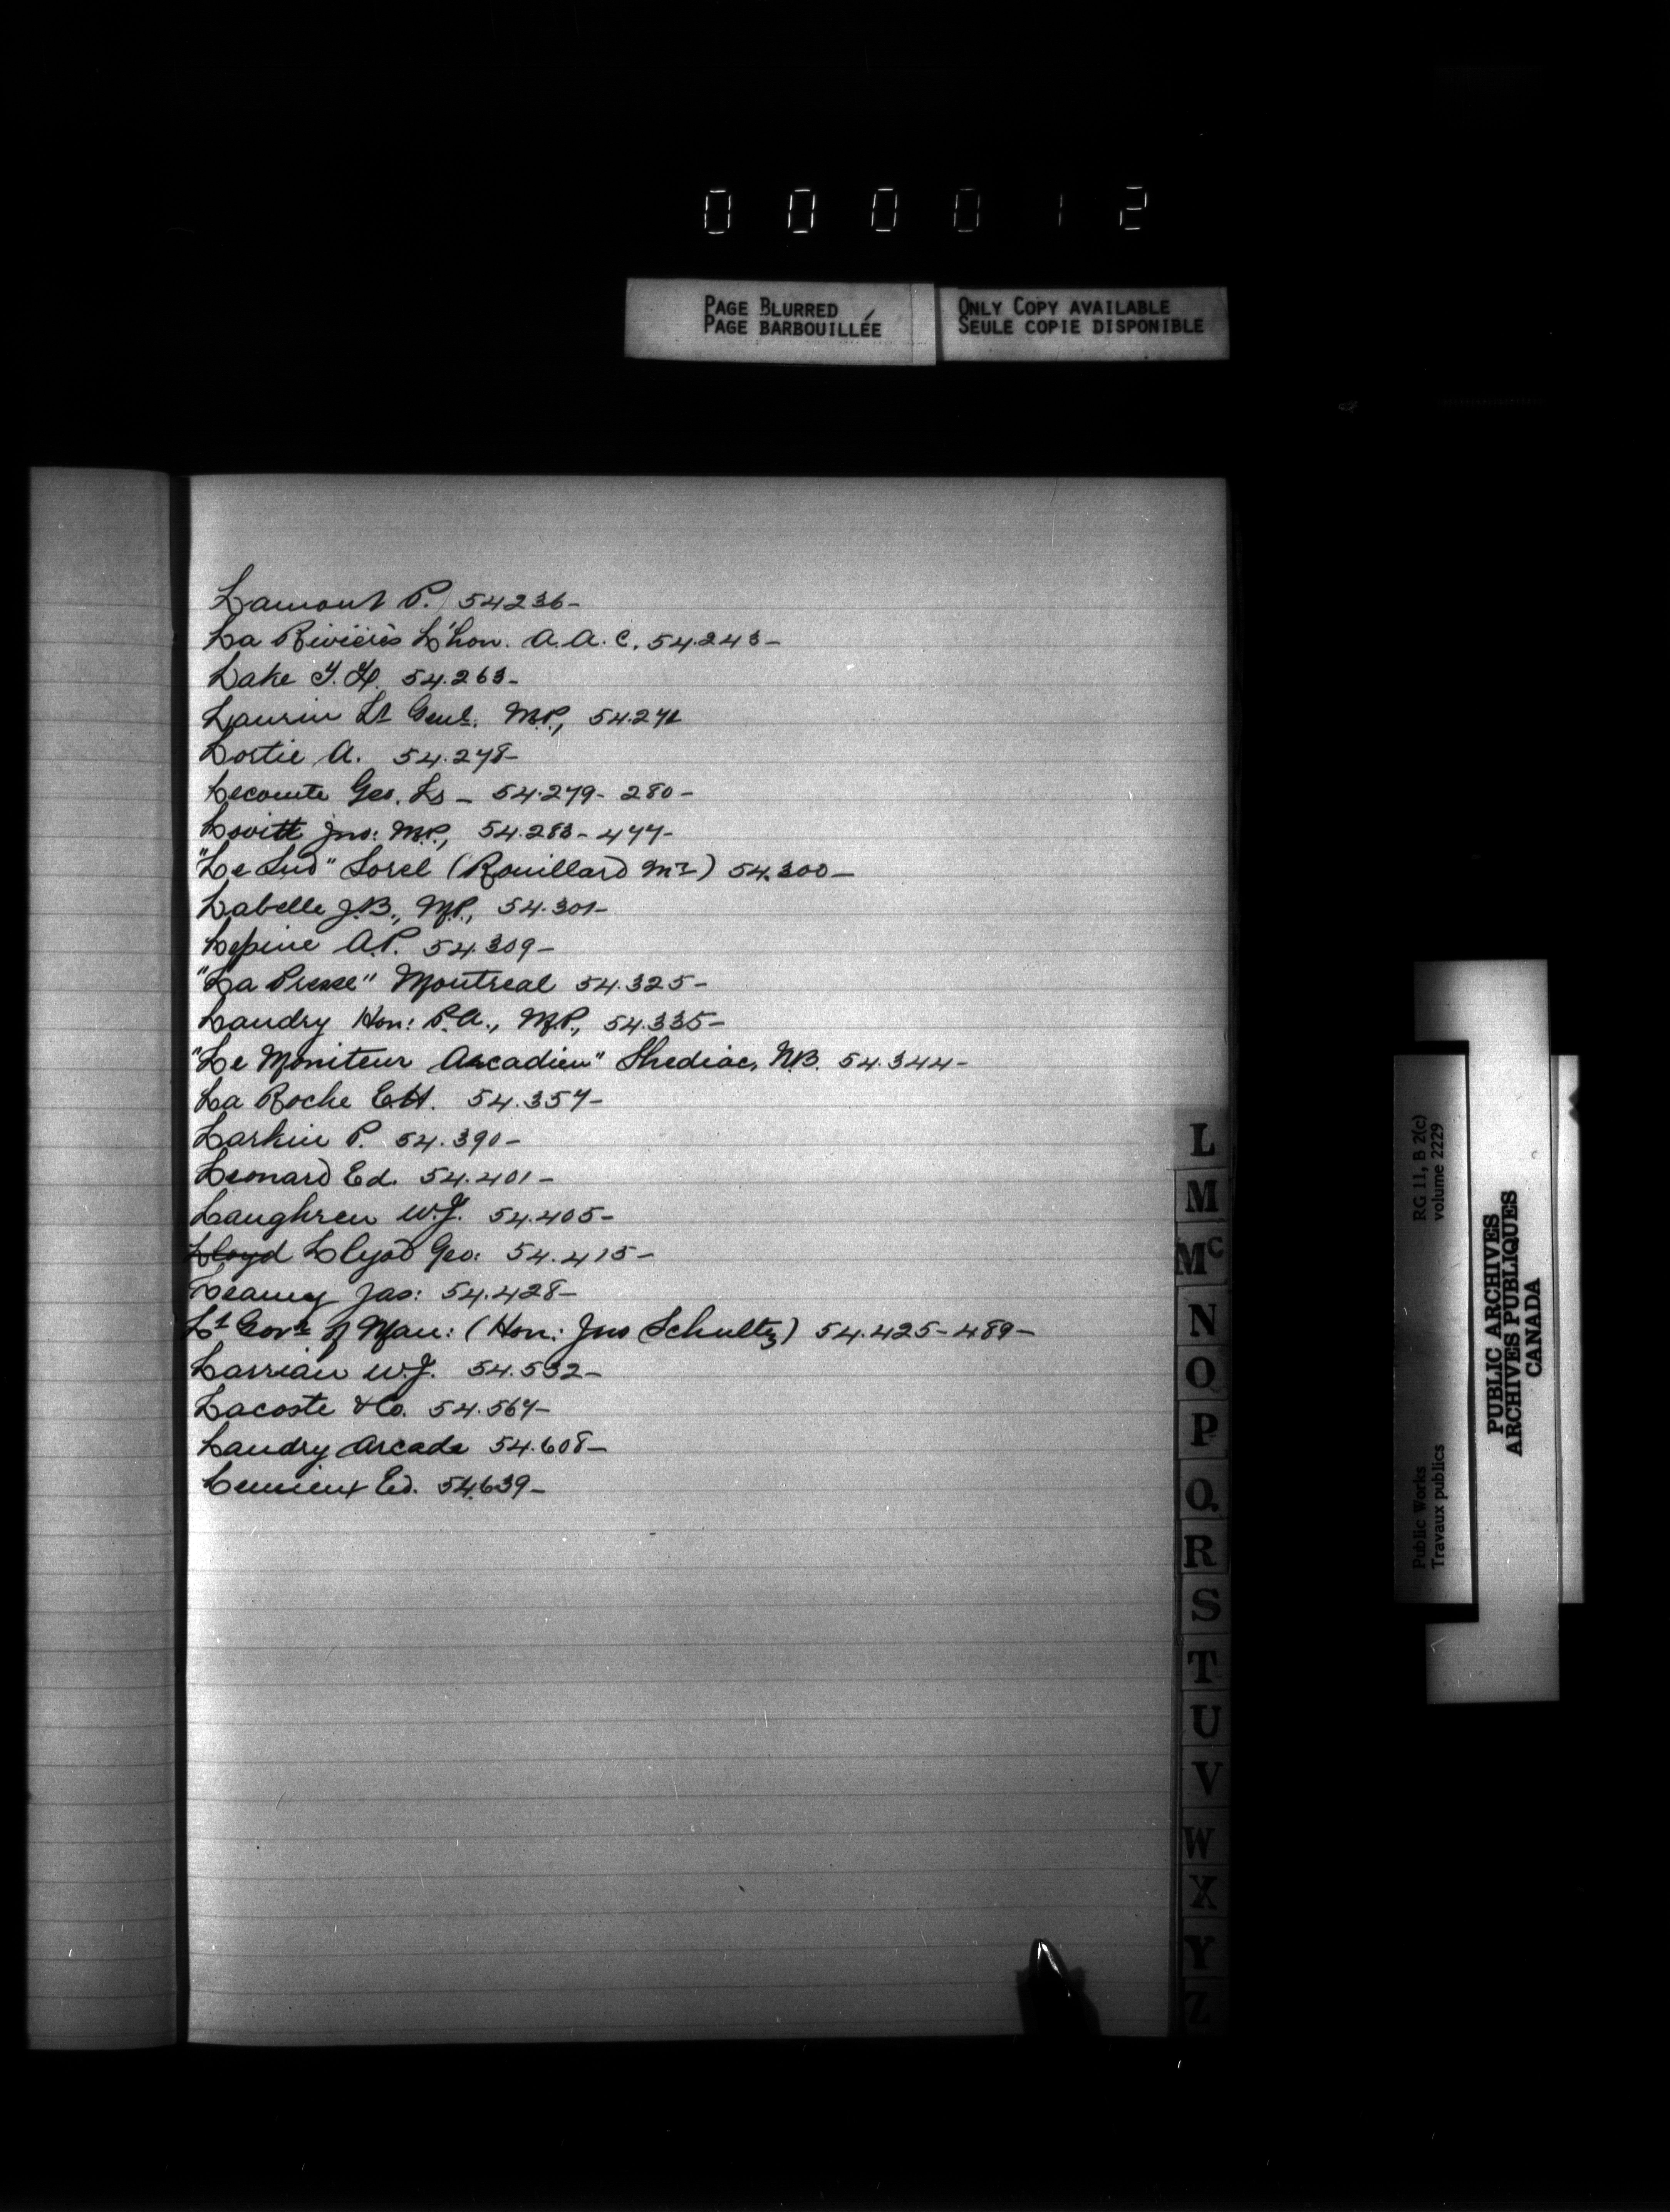 000012
PAGE BLURRED
PAGE BARBOUILLÉE
ONLY COPY AVAILABLE
SEULE COPIE DISPONIBLE
Lamont P. 54236-
La Rivières L'hon. A.A.C. 54.243-
Lake T. H. 54.263-
Laurin Lt Genl. M.P., 54.271
Lortie A. 54.278-
Lecomte Geo. Ls - 54.279- 280-
Lovitt Jno: M.P., 54.283- 477-
"Le Sud" Sorel (Rouillard Mr) 54.300-
Labelle J.B., M.P., 54.301-
Lepine A.P. 54.309-
"La Presse" Montreal 54.325-
Landry Hon: P.A., M.P., 54.335-
"Le Moniteur Acadien" Shediac, N.B. 54.344-
La Roche E.H. 54.357-
Larkin P. 54.390-
Leonard Ed. 54.401-
Laughren W.J. 54.405-
Lloyd Llyod Geo: 54.415-
Leamy Jas: 54.428-
Lt Govr of Man: (Hon: Jno Schultz) 54.425- 489-
Larriau W.J. 54.532-
Lacoste & Co. 54.567-
Landry Arcade 54.608-
Lemieux Ed. 54.639-
L
M
Mc
N
O
P
Q
R
S
T
U
V
W
X
Y
Z
Public Works RG 11, B 2(c)
Travaux publics volume 2229
PUBLIC ARCHIVES
ARCHIVES PUBLIQUES
CANADA